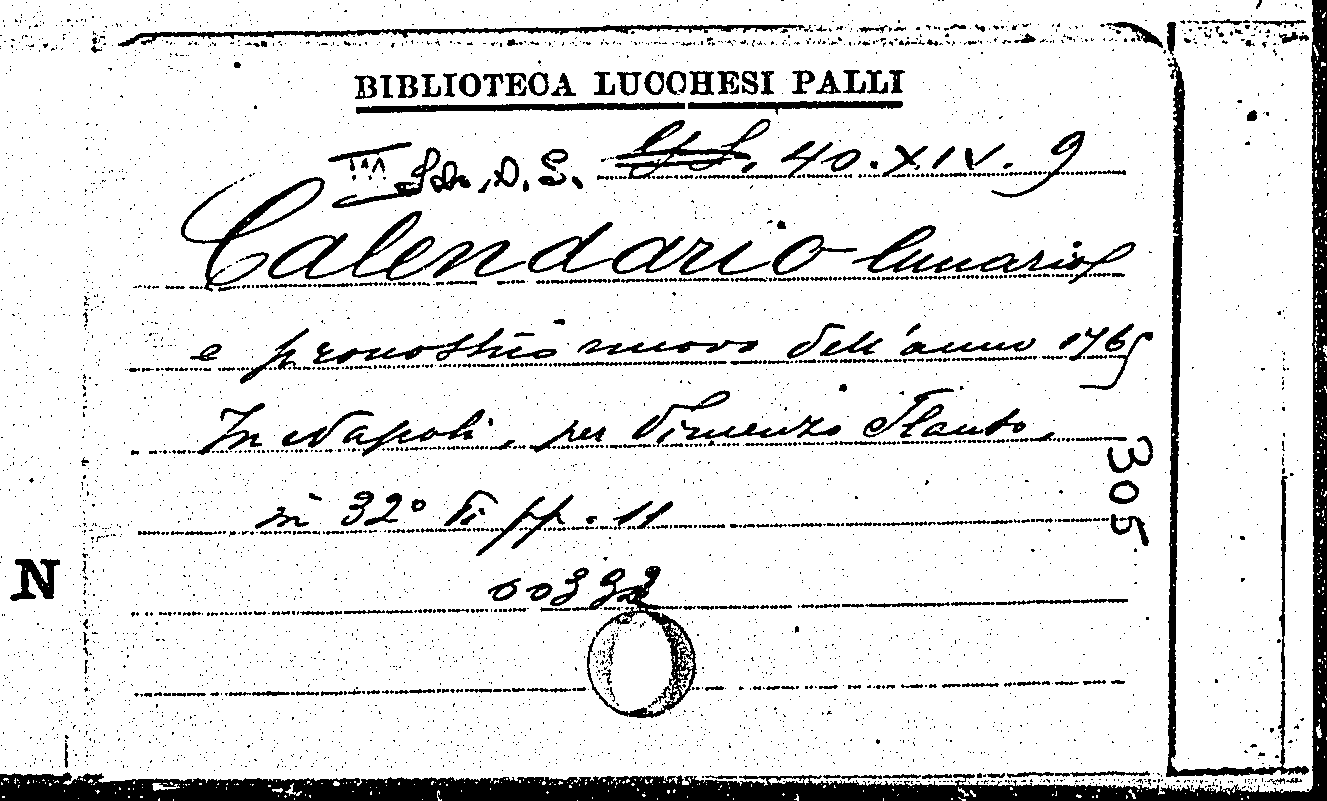 BIBLIOTECA LUCCHESI PALLI
III Sala, D. S. 40. XIV. 9
Calendario lunario
e pronostico nuovo dell'anno 1765
In Napoli, per Vincenzo Flauto,
in 32° di pp. 11
305
N